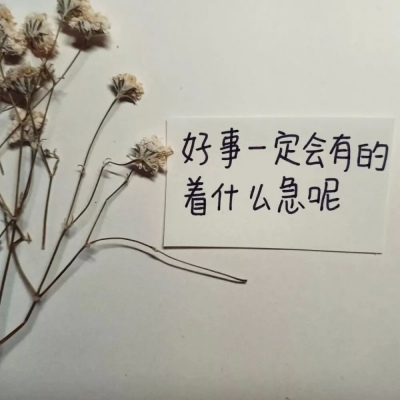 好事一定会有的
着什么急呢